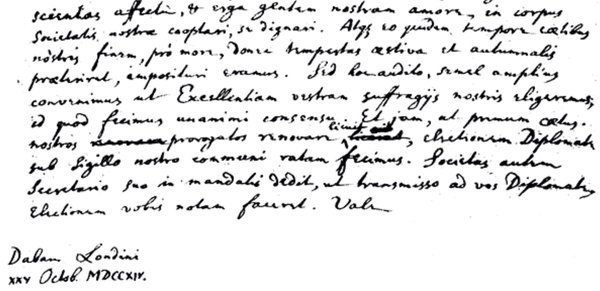 scientias affectu, & erga gentem nostram amore, in corpus
Societatis nostræ cooptari, se dignari. Atqꝫ eo quidem tempore cœtibus
nostris finem, pro more, donec tempestas æstiva et autumnalis
præteriret, imposituri eramus. Sed hoc audito, semel amplius
convenimus ut Excellentiam vestram suffragijs nostris eligeremus;
id quod fecimus unanimi consensu. Et jam, ut primum cœtus
nostros prorogatos renovare licuit, electionem Diplomate
sub Sigillo nostro communi ratam fecimus. Societas autem
Secretario suo in mandatis dedit, ut transmisso ad vos Diplomate,
Electionem vobis notam faceret. Vale
Dabam Londini
XXV Octob. MDCCXIV.